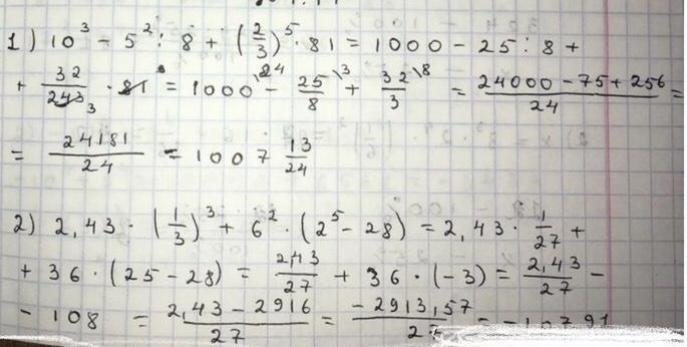 1) 10³ - 5² : 8 + (2/3)⁵ · 81 = 1000 - 25 : 8 +
+ 32/243 3 · 81 = 1000\24 - 25/8\3 + 32/3\8 = 24000 - 75 + 256/24 =
= 24181/24 = 1007 13/24
2) 2,43 · (1/3)³ + 6² · (2⁵ - 28) = 2,43 · 1/27 +
+ 36 · (25 - 28) = 2,43/27 + 36 · (-3) = 2,43/27 -
- 108 = 2,43 - 2916/27 = -2913,57/27 = -107,91